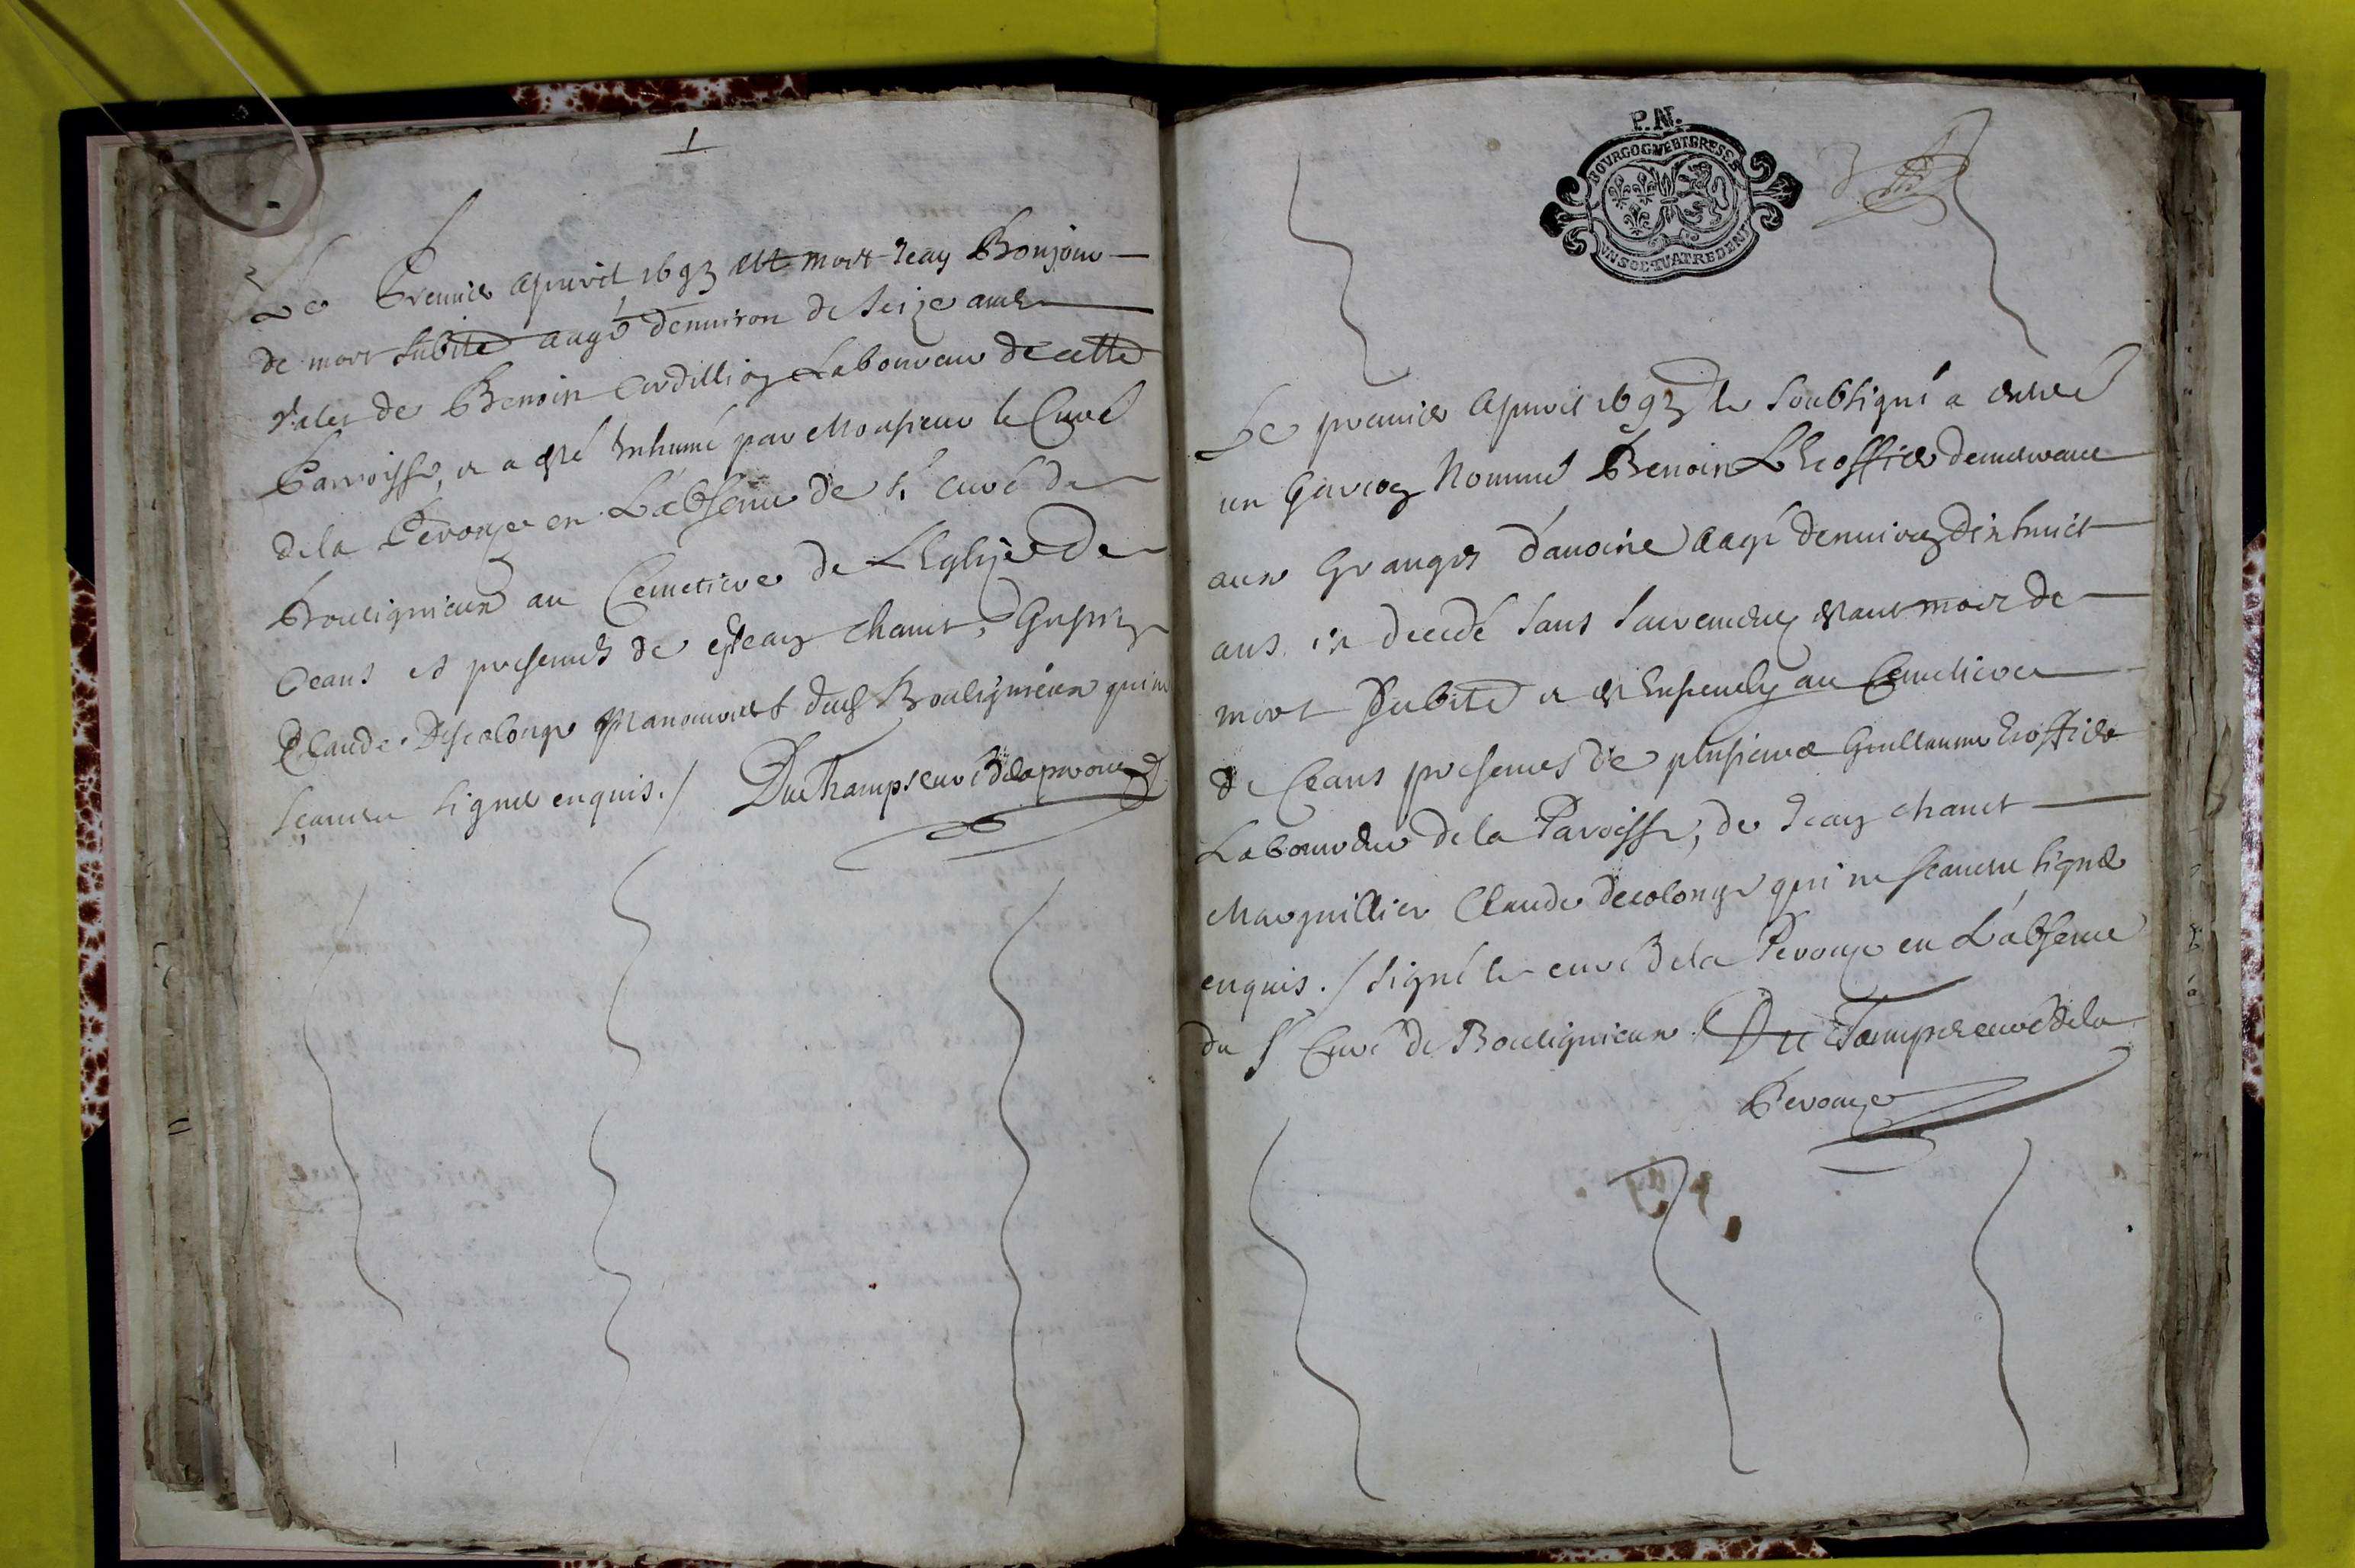 1
Le Premier apuril 1693 est mort Jean Bonjour
de mort subite aagé denuiron de Seize ans
valet de Benoin Cordillion Laboureur de cette
Parroisse, et a esté Inhumé par Monsieur le Curé
dela Perouze en Labsence de Sr curé de
Bouligneux au Cemetiere de L'Eglize de
Ceans et presences de Jean chanet,
Claude Decolonge Manouuriers dud Bouligneux qui ne
sçauent signer enquis./ Duchamps curé de la perouze
P.N.
BOVRGOGNE ET BRESSE
VN SOL QVATRE DENI
Le premier apuril 1693 le soubsigné a enterré
un garcon Nommé Benoin Lhoffier demeurant
aux Granges d'auoine aagé denuiron dixhuict
ans et decedé sans sacremens estant mort de
mort subite et est Enseuely au Cemetiere
de Ceans presences de plusieurs Guillaume Lhoffier
Laboureur de la Paroisse, de Jean chanet
Marguillier Claude decolonge qui ne scauent signer
enquis./ signé le curé dela Perouze en L'absence
du Sr Curé de Bouligneux Du Champs curé dela
Perouze